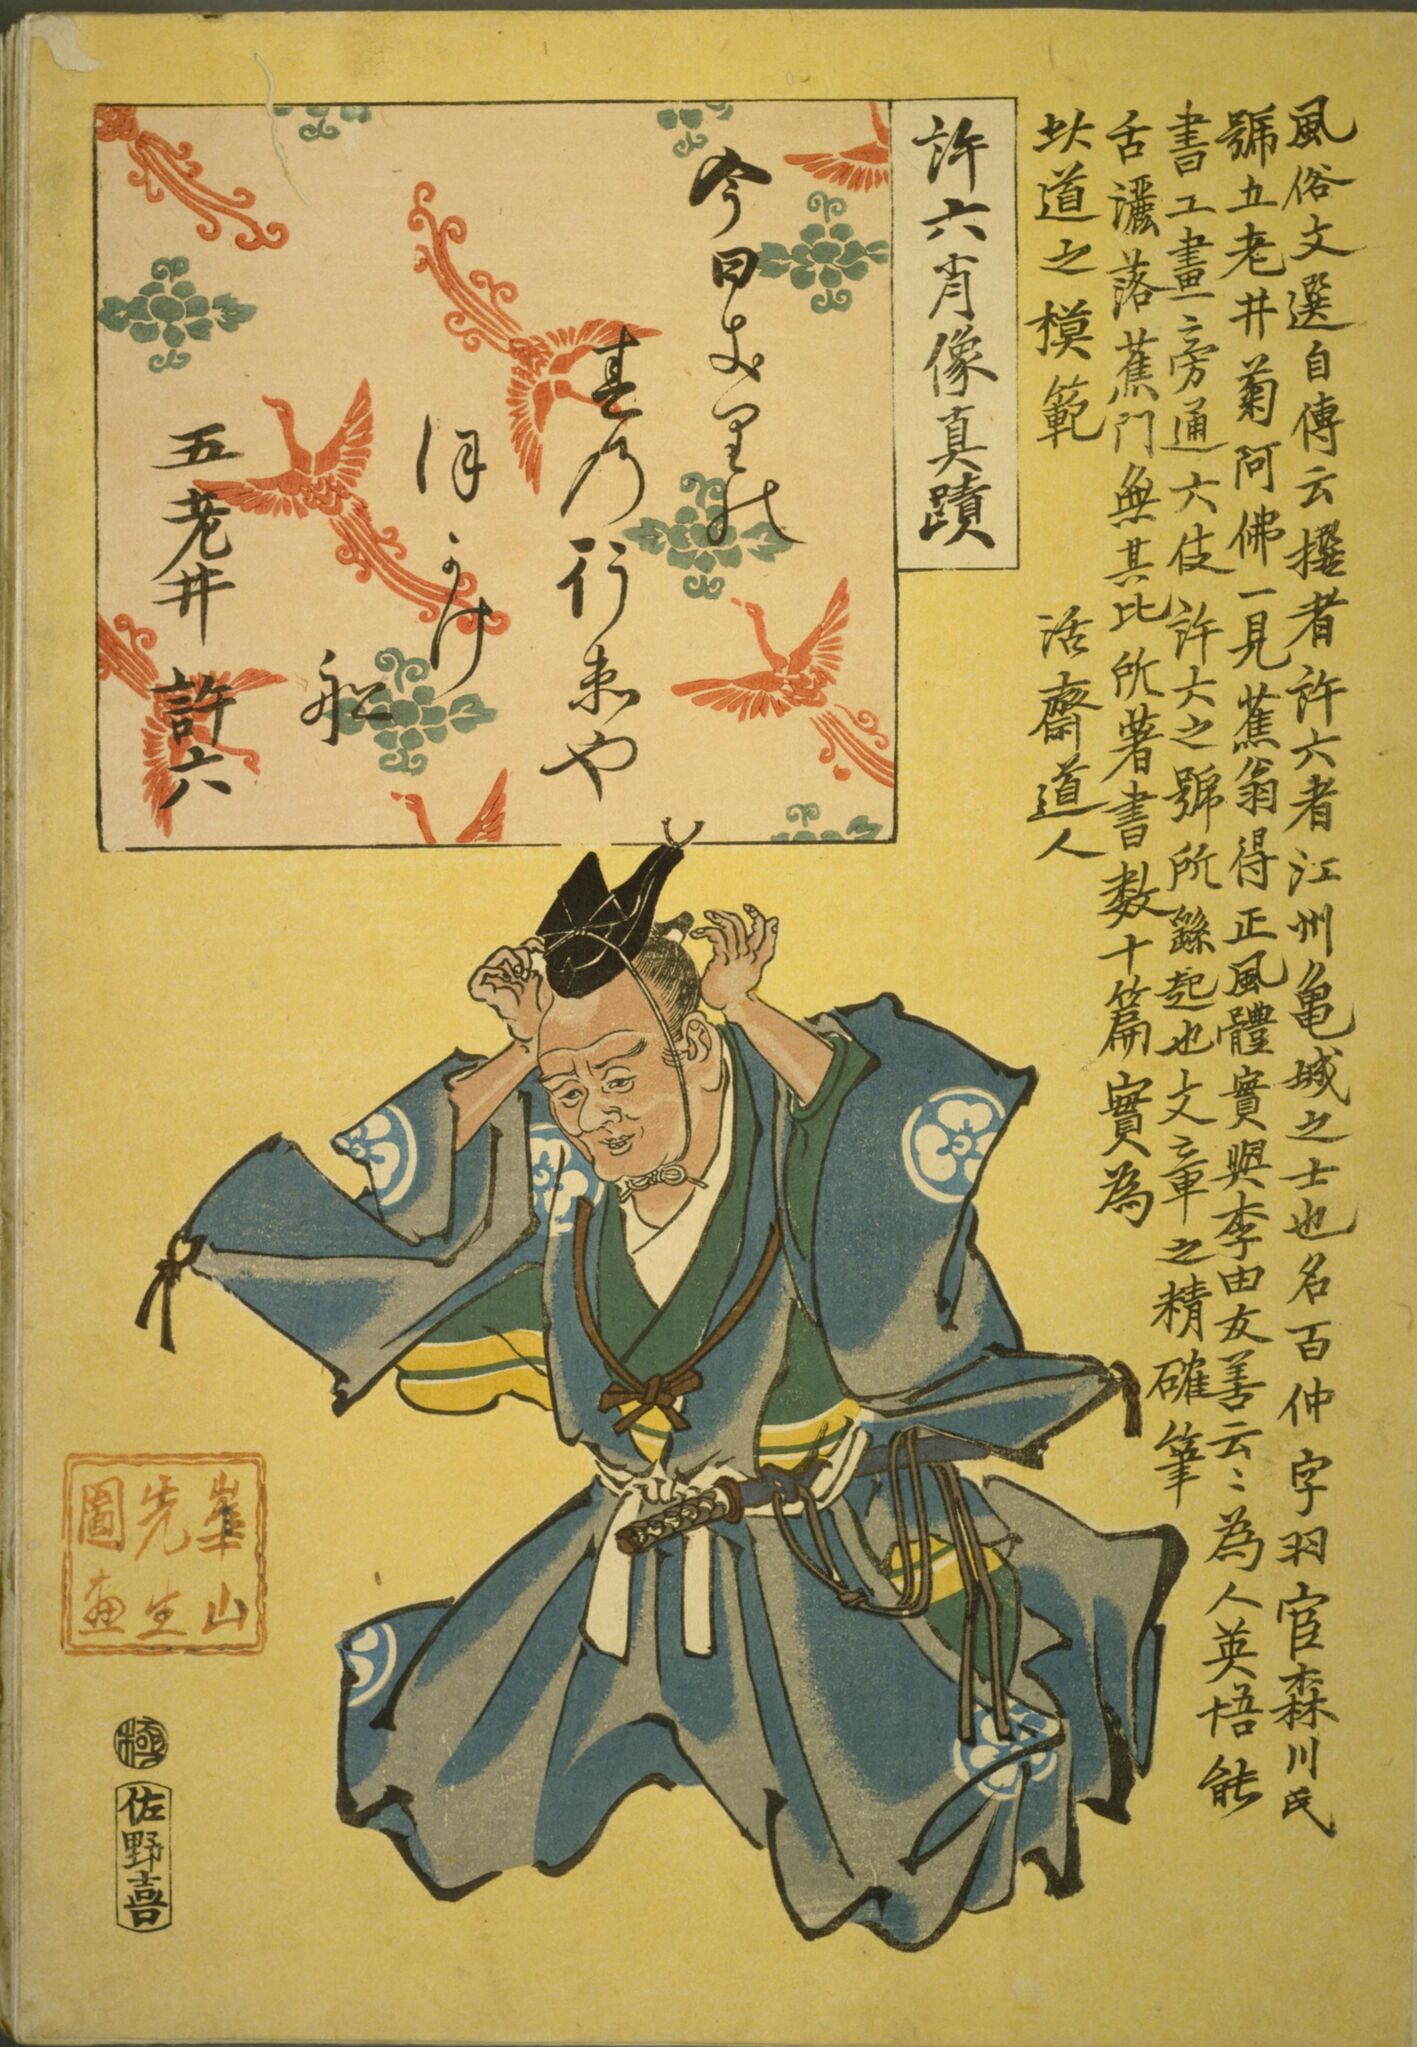 風俗文選自傳云撰者許六者江州亀城之士也名百仲字羽官森川氏
號五老井菊阿佛一見蕉翁得正風體實與李由友善云〻為人英悟能
書工畫旁通六伎許六之號所繇起也文章之精確筆
舌灑落蕉门無其比所著書数十篇實為
此道之模範
活齋道人
許六肖像真蹟
今日
春乃行衛や
ほかけ
船
五老井 許六
崋山
先生
圖画
極
佐野喜